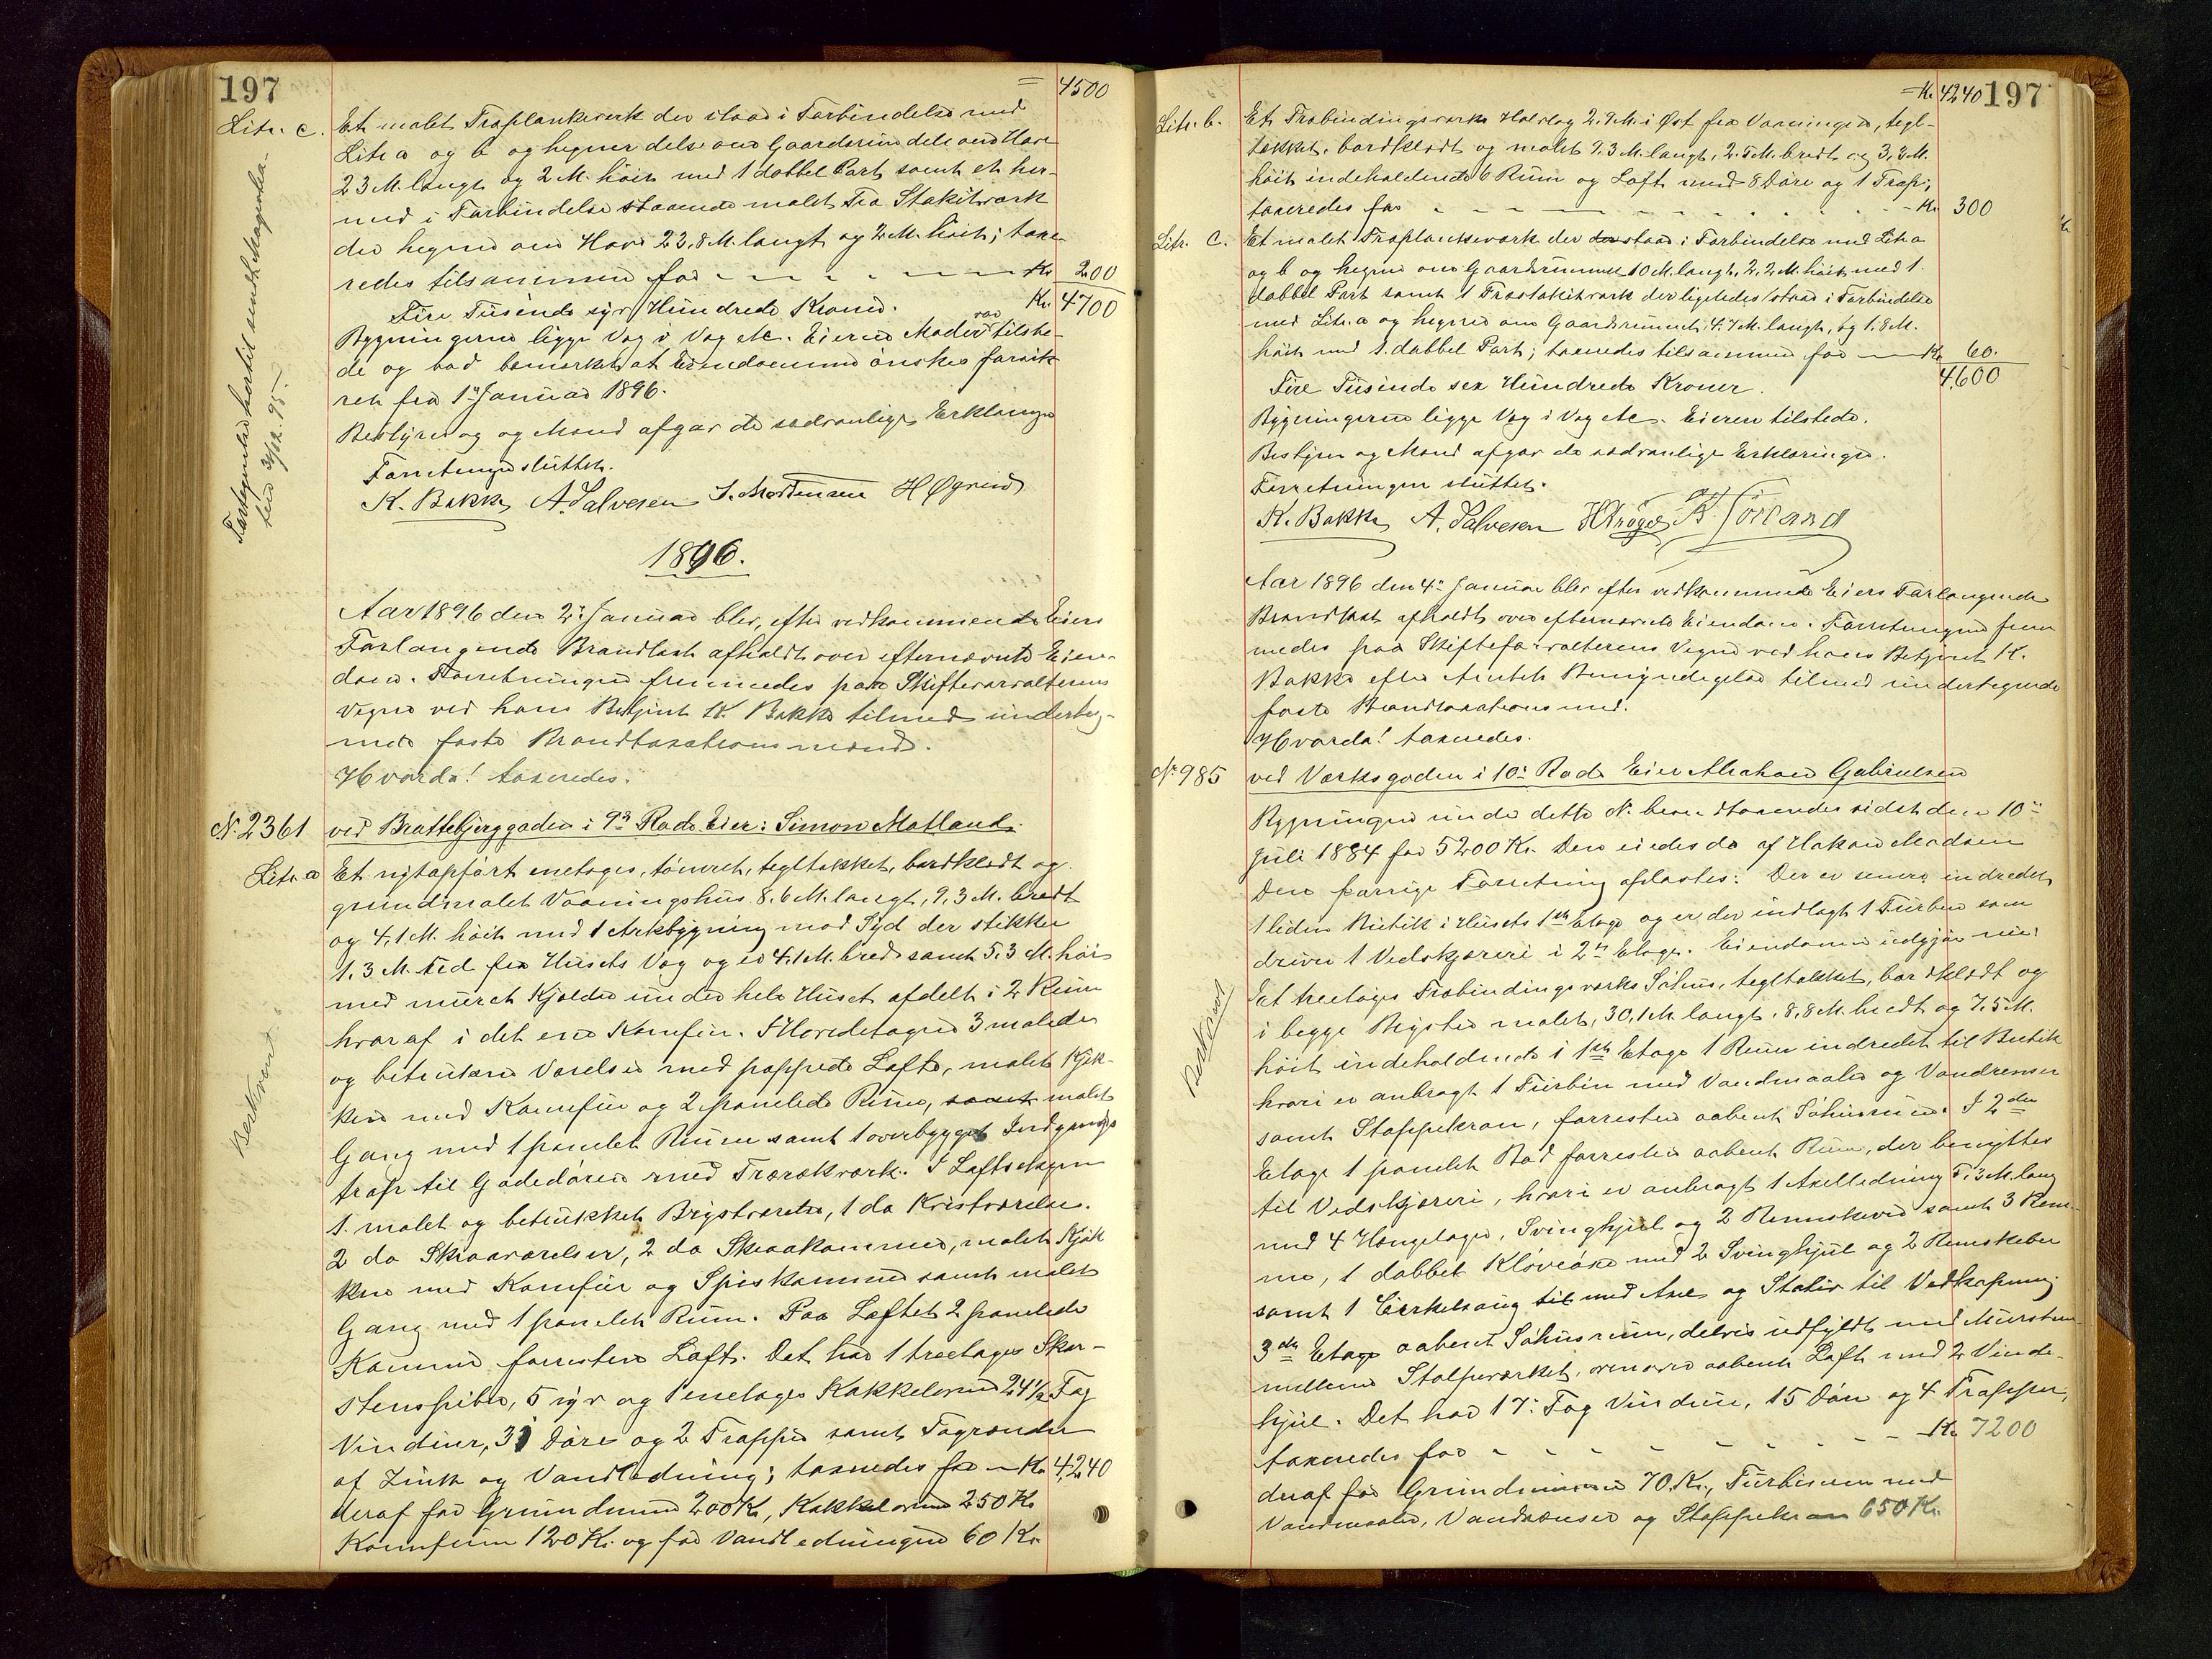 197
= 4500
Litr. c. Et malet Træplankeverk der staar i Forbindelse med
Litr a og b og hegner dels om Gaardsrum dels om Have
23 M. langt og 2 M. høit med 1 dobbel Port samt et her-
med i Forbindelse staaende malet Træ Stakitværk
der hegner om Have 23,8 M. langt og 2 M. høit; taxe-
redes tilsammen for - - - - Kr. 200
Fire Tusinde syv Hundrede Kroner. Kr. 4700
Bygningerne ligge Væg i Væg etc. Eierens Moder var tilste-
de og bad bemærket at Eiendommen ønskes forsik-
ret fra 1ste Januar 1896.
Bestyrer og Mænd afgav de sædvanlige Erklæringer
Forretningen sluttet.
K. Bakke A. Salvesen S. Mortensen H Øgreid
Fortegnelse hertil sendt Magistra-
ten 31/12. 95.
1896.
Aar 1896 den 2den Januar blev, efter vedkommende Eiers
Forlangende Brandtaxt afholdt over efternævnte Eien-
dom. Forretningen fremmedes paa Skifteforvalterens
Vegne ved hans Betjent K. Bakke tilmed underteg-
nede faste Brandtaxationsmænd.
Hvorda! taxeredes.
No. 2361 ved Brattebjerggaden i 9de Rode Eier: Simon Matland.
Litr. a Et nyopført enetages, tømret, tegltækket, bordklædt og
grundmalet Vaaningshus 8,6 M. langt, 9,3 M. bredt
og 4,1 M. høit med 1 Arkbygning mod Syd der stikker
1,3 M. ud fra Husets Væg og er 4,1 M. bred samt 5,3 M. høi
med muret Kjælder under hele Huset afdelt i 2 Rum
hvoraf i det ene Komfur. I Hovedetagen 3 malede
og betrukne Værelser med pappede Lofte, malet Kjøk-
ken med Komfur og 2 panelede Rum, samt malet
Gang med 1 panelet Rum samt 1 overbygget Indgangs
trap til Gadedøren med Trærækværk. I Loftsetagen
1 malet og betrukket Brystværelse, 1 do Kvistværelse.
2 do Skraaværelser, 2 do Skraakammer, malet Kjøk
ken med Komfur og Spiskammer samt malet
Gang med 1 panelet Rum. Paa Loftet 2 panelede
Kammer forresten Loft. Det har 1 treetages Skor-
stenspibe, 5 nye og 1 enetages Kakkelovne 24 1/2 Fag
Vinduer, 31 Døre og 2 Trapper samt Tagrender
af Zink og Vandledning; taxeredes for - Kr. 4,240
deraf for Grundmuren 200 Kr., Kakkelovnene 250 Kr.
Komfuren 120 Kr. og for Vandledningen 60 Kr.
Beskrevet
= Kr. 4240 197
Litr. b. Et Træbindingsværks Halvtag 2,9 M. i Øst fra Vaaningen, tegl-
tækket, bordklædt og malet 9,3 M. langt, 2,5 M. bredt og 3,3 M.
høit indeholdende 6 Rum og Loft med 8 Døre og 1 Trap;
taxeredes for - - - - Kr. 300
Litr. C. Et malet Træplankeværk der staar i Forbindelse med Litr. a
og b og hegner om Gaardsrummet 10 M. langt, 2,2 M. høit med 1
dobbel Port samt 1 Træstakitværk der ligeledes staar i Forbindelse
med Litr. a og hegner om Gaardsrummet, 4,7 M. langt, og 1,8 M.
høit med 1 dobbel Port; taxeredes tilsammen for - Kr. 60.
Fire Tusinde sex Hundrede Kroner. 4,600
Bygningerne ligge Væg i Væg etc. Eieren tilstede.
Bestyrer og Mænd afgav de sædvanlige Erklæringer.
Forretningen sluttet.
K. Bakke A. Salvesen H Krøger B. Torland
Aar 1896 den 4de Januar blev efter vedkommende Eiers Forlangende
Brandtaxt afholdt over efternævnte Eiendom. Forretningen frem
medes paa Skifteforvalterens Vegne ved hans Betjent K.
Bakke efter Amtets Bemyndigelse tilmed undertegnede
faste Brandtaxationsmænd.
Hvorda! taxeredes.
No. 985 ved Værksgaden i 10de Rode Eier Abraham Gabrielsen
Bygningen under dette No. brandtaxeredes sidst den 10de
Juli 1884 for 5200 Kr. Den eiedes da af Haken Madsen
Den forrige Forretning oplæstes. Der er senere indredet
1 liden Butik i Husets 1ste Etage og er der indlagt 1 Turbin som
driver 1 Vedskjæreri i 2den Etage. Eiendommen udgjør nu:
Et treetages Træbindingsværks Søhus, tegltækket, bordklædt og
i begge Bryster malet, 30,1 M. langt, 8,8 M. bredt og 7,5 M.
høit indeholdende i 1ste Etage 1 Rum indredet til Butik
hvori er anbragt 1 Turbin med Vandmaaler og Vandrenser
samt Stoppekran, forresten aabent Søhusrum. I 2den
Etage 1 panelet Bod forresten aabent Rum, der benyttes
til Vedskjæreri, hvori er anbragt 1 Axelledning 5,3 M. lang
med 4 Hængelager, Svinghjul og 2 Remskiver samt 3 Rem-
me, 1 dobbel Kløveøxe med 2 Svinghjul og 2 Remskiver
samt 1 Cirkelsaug til med Axel og Stativ til Vedkapning.
3die Etage aabent Søhusrum, delvis udfyldt med Mursten
mellem Stolpeværket, ovenover aabent Loft med 2 Vinde-
hjul. Det har 17 Fag Vinduer, 15 Døre og 4 Trapper,
taxeredes for - - - - Kr. 7200
deraf for Grundmuren 70 Kr., Turbinen med
Vandmaaler, Vandrenser og Stoppekran 650 Kr.
Beskrevet